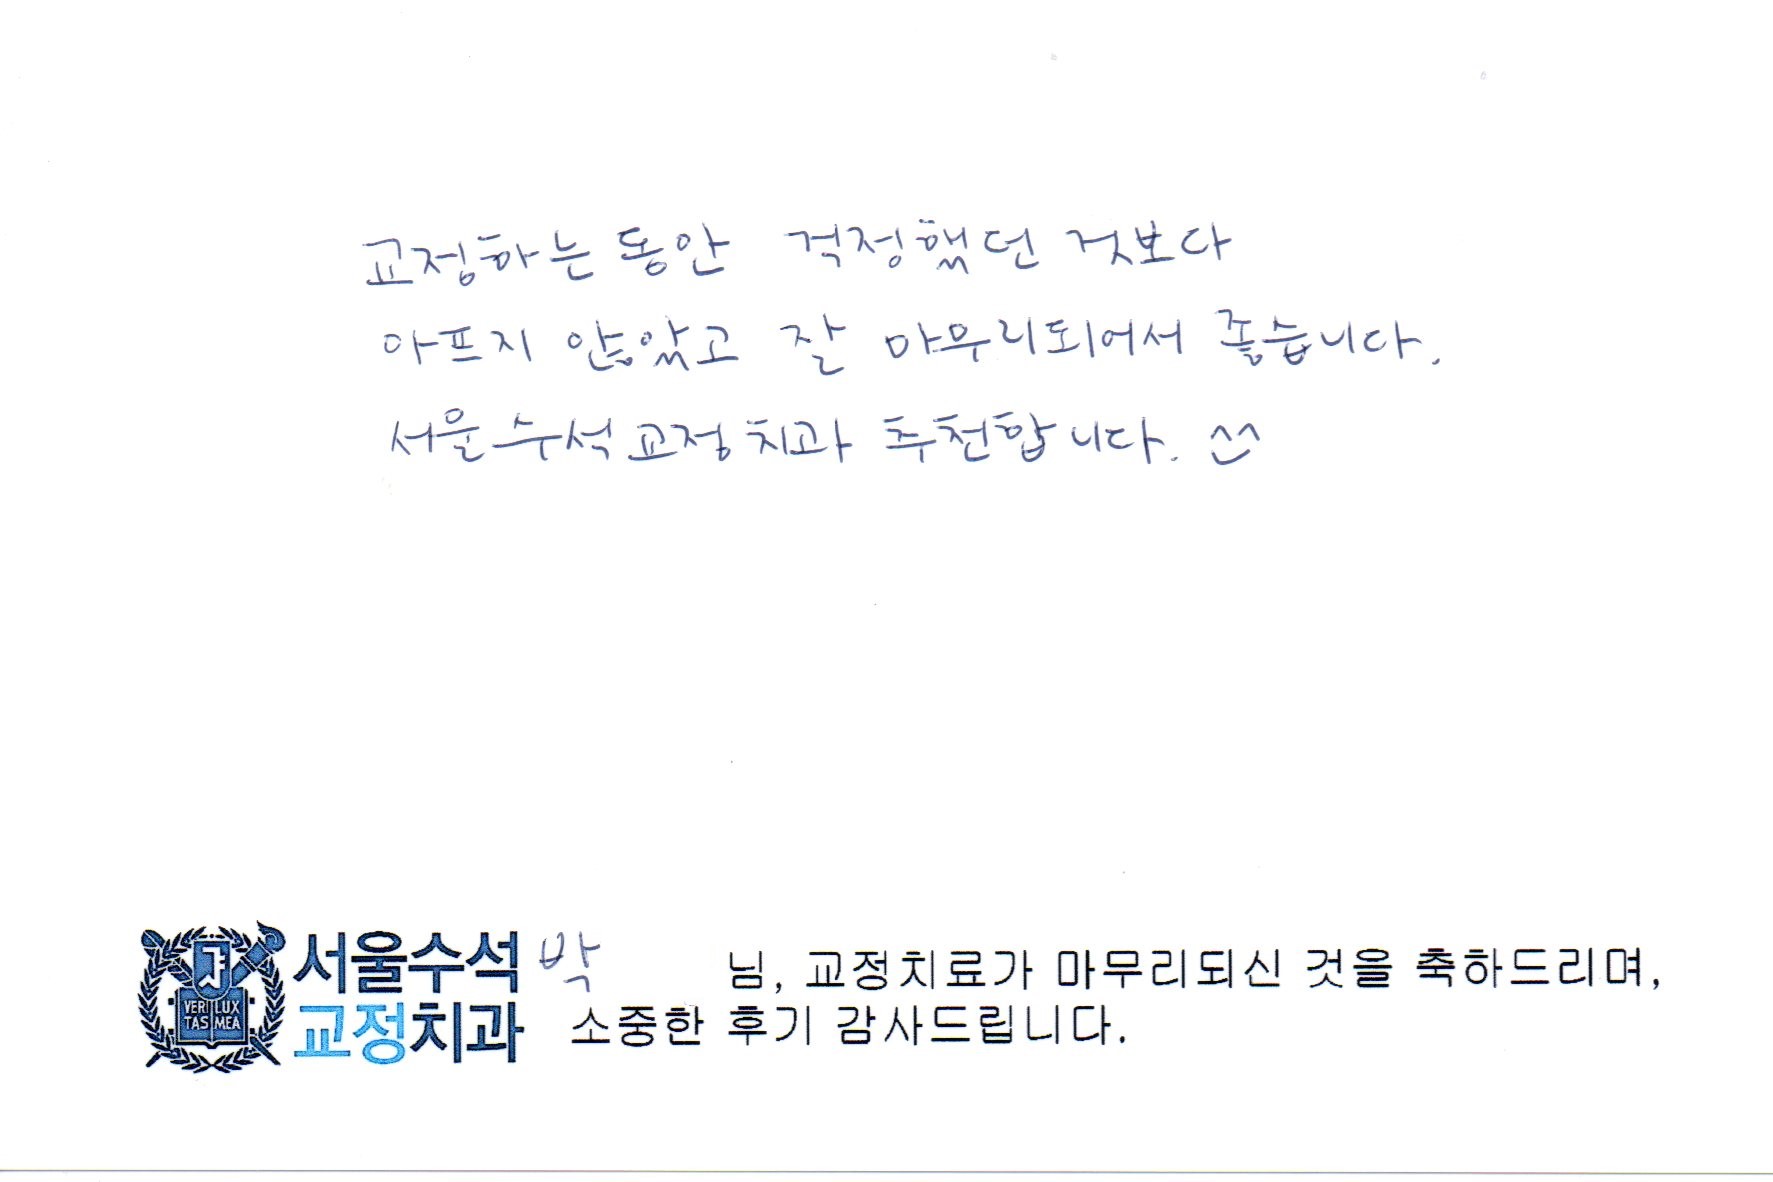 교정하는 동안 걱정했던 것보다
아프지 않았고 잘 마무리되어서 좋습니다.
서울수석교정치과 추천합니다. ^^
서울수석
교정치과
VERI LUX
TAS MEA
박 님, 교정치료가 마무리되신 것을 축하드리며,
소중한 후기 감사드립니다.